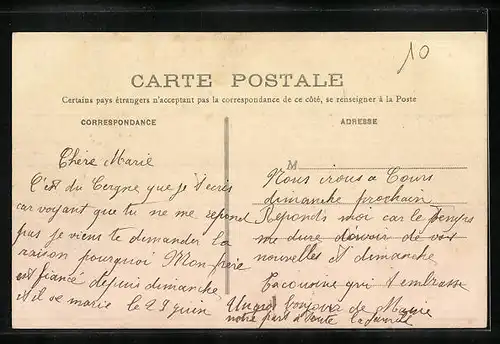 10
CARTE POSTALE
Certains pays étrangers n'acceptant pas la correspondance de ce côté, se renseigner à la Poste
CORRESPONDANCE
Chère Marie
C'est du Cergne que je t'ecris
car voyant que tu ne me repond
pas je viens te demander la
raison pourquoi Mon frère
est fiancé depuis dimanche
et il se marie le 29 juin
ADRESSE
M
Nous irons a Cours
dimanche prochain
Reponds moi car le temps
me dure davoir de vos
nouvelles et dimanche
Ta cousine qui t'embrasse
Un gros bonjour de Marie
notre part a toute la famille